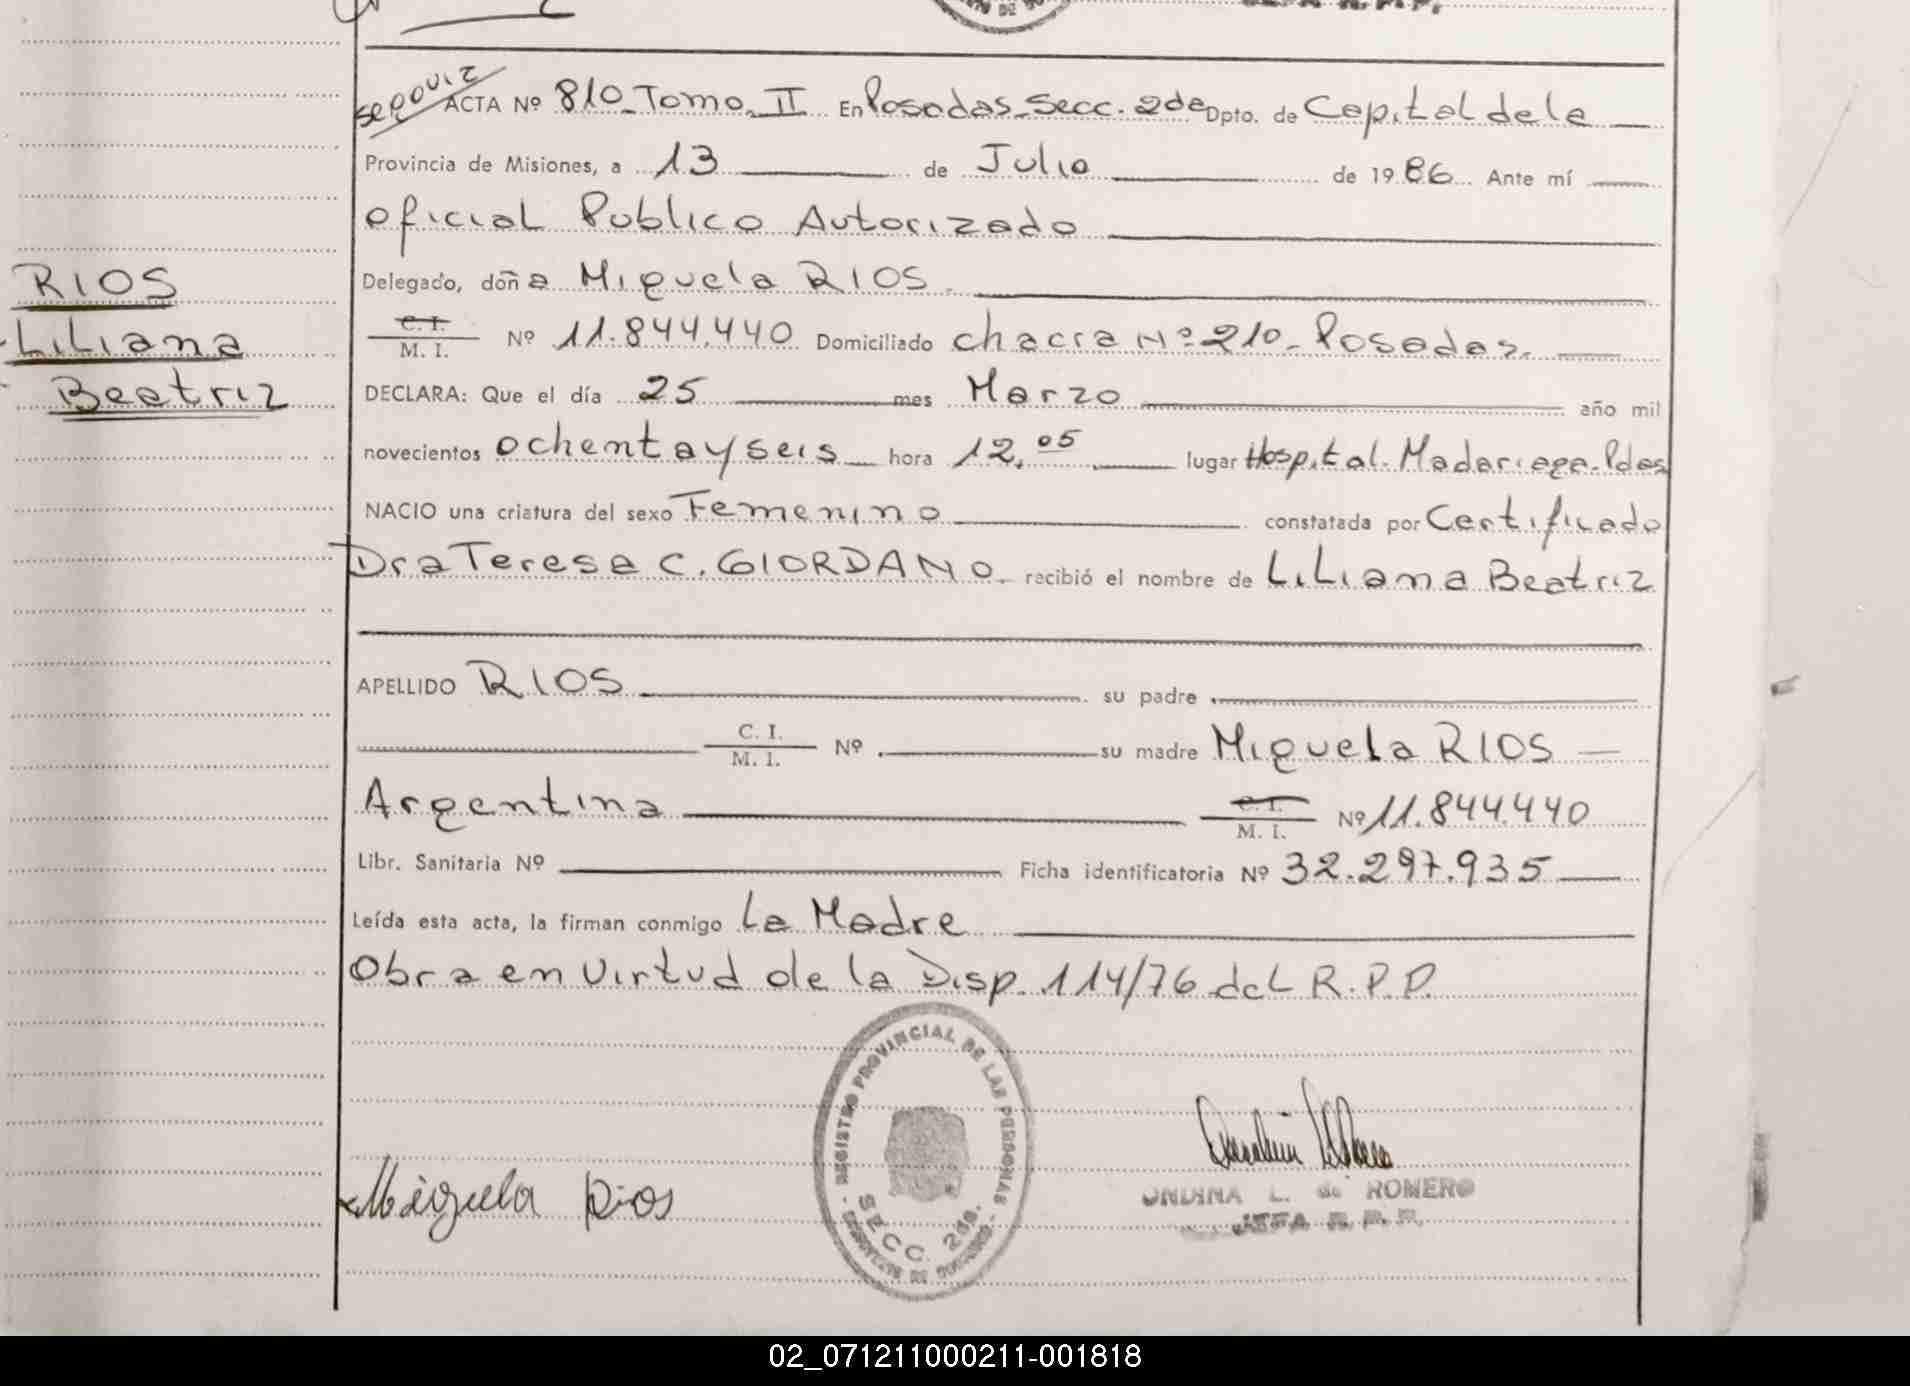 ACTA Nº 810 Tomo II En Posadas Secc. 2da Dpto. de Capital de la
Provincia de Misiones, a 13 de Julio de 1986 Ante mí
oficial Publico Autorizado
Delegado, doña Miguela RIOS
C. I.
M. I. Nº 11.844.440 Domiciliado chacra Nº 210 Posadas.
DECLARA: Que el día 25 mes Marzo año mil
novecientos ochentayseis hora 12,05 lugar Hospital Madariaga Pdas
NACIO una criatura del sexo Femenino constatada por Certificado
Dra Teresa C. GIORDANO recibió el nombre de Liliana Beatriz
APELLIDO RIOS su padre
C. I.
M. I. Nº su madre Miguela RIOS
Argentina C. I.
M. I. Nº 11.844.440
Libr. Sanitaria Nº Ficha identificatoria Nº 32.297.935
Leída esta acta, la firman conmigo La Madre
Obra en Virtud de la Disp. 114/76 del R.P.P.
RIOS
Liliana
Beatriz
REGISTRO PROVINCIAL DE LAS PERSONAS
SECC. 2da.
Miguela Rios
ONDINA L. de ROMERO
JEFA R. P. P.
02_071211000211-001818